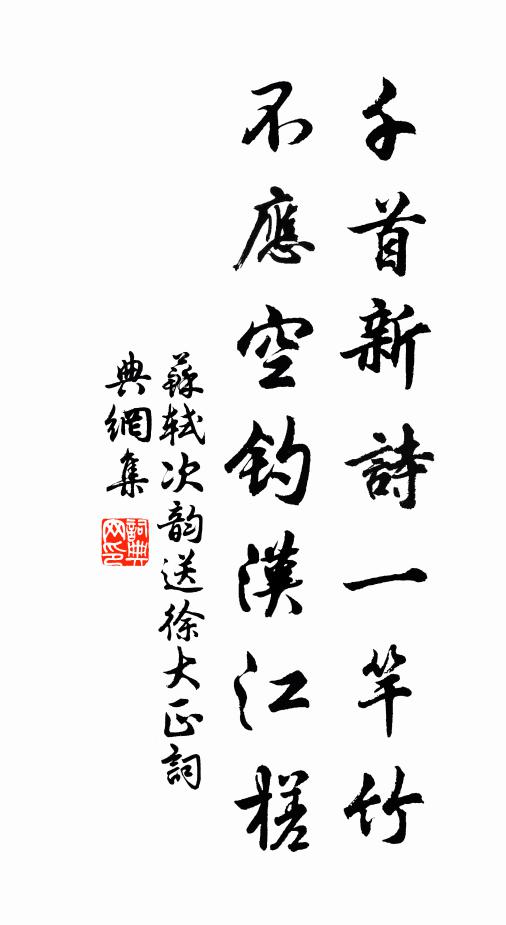 千首新詩一竿竹
不應空釣漢江槎
蘇軾次韵送徐大正詞
典網集
詞典网印